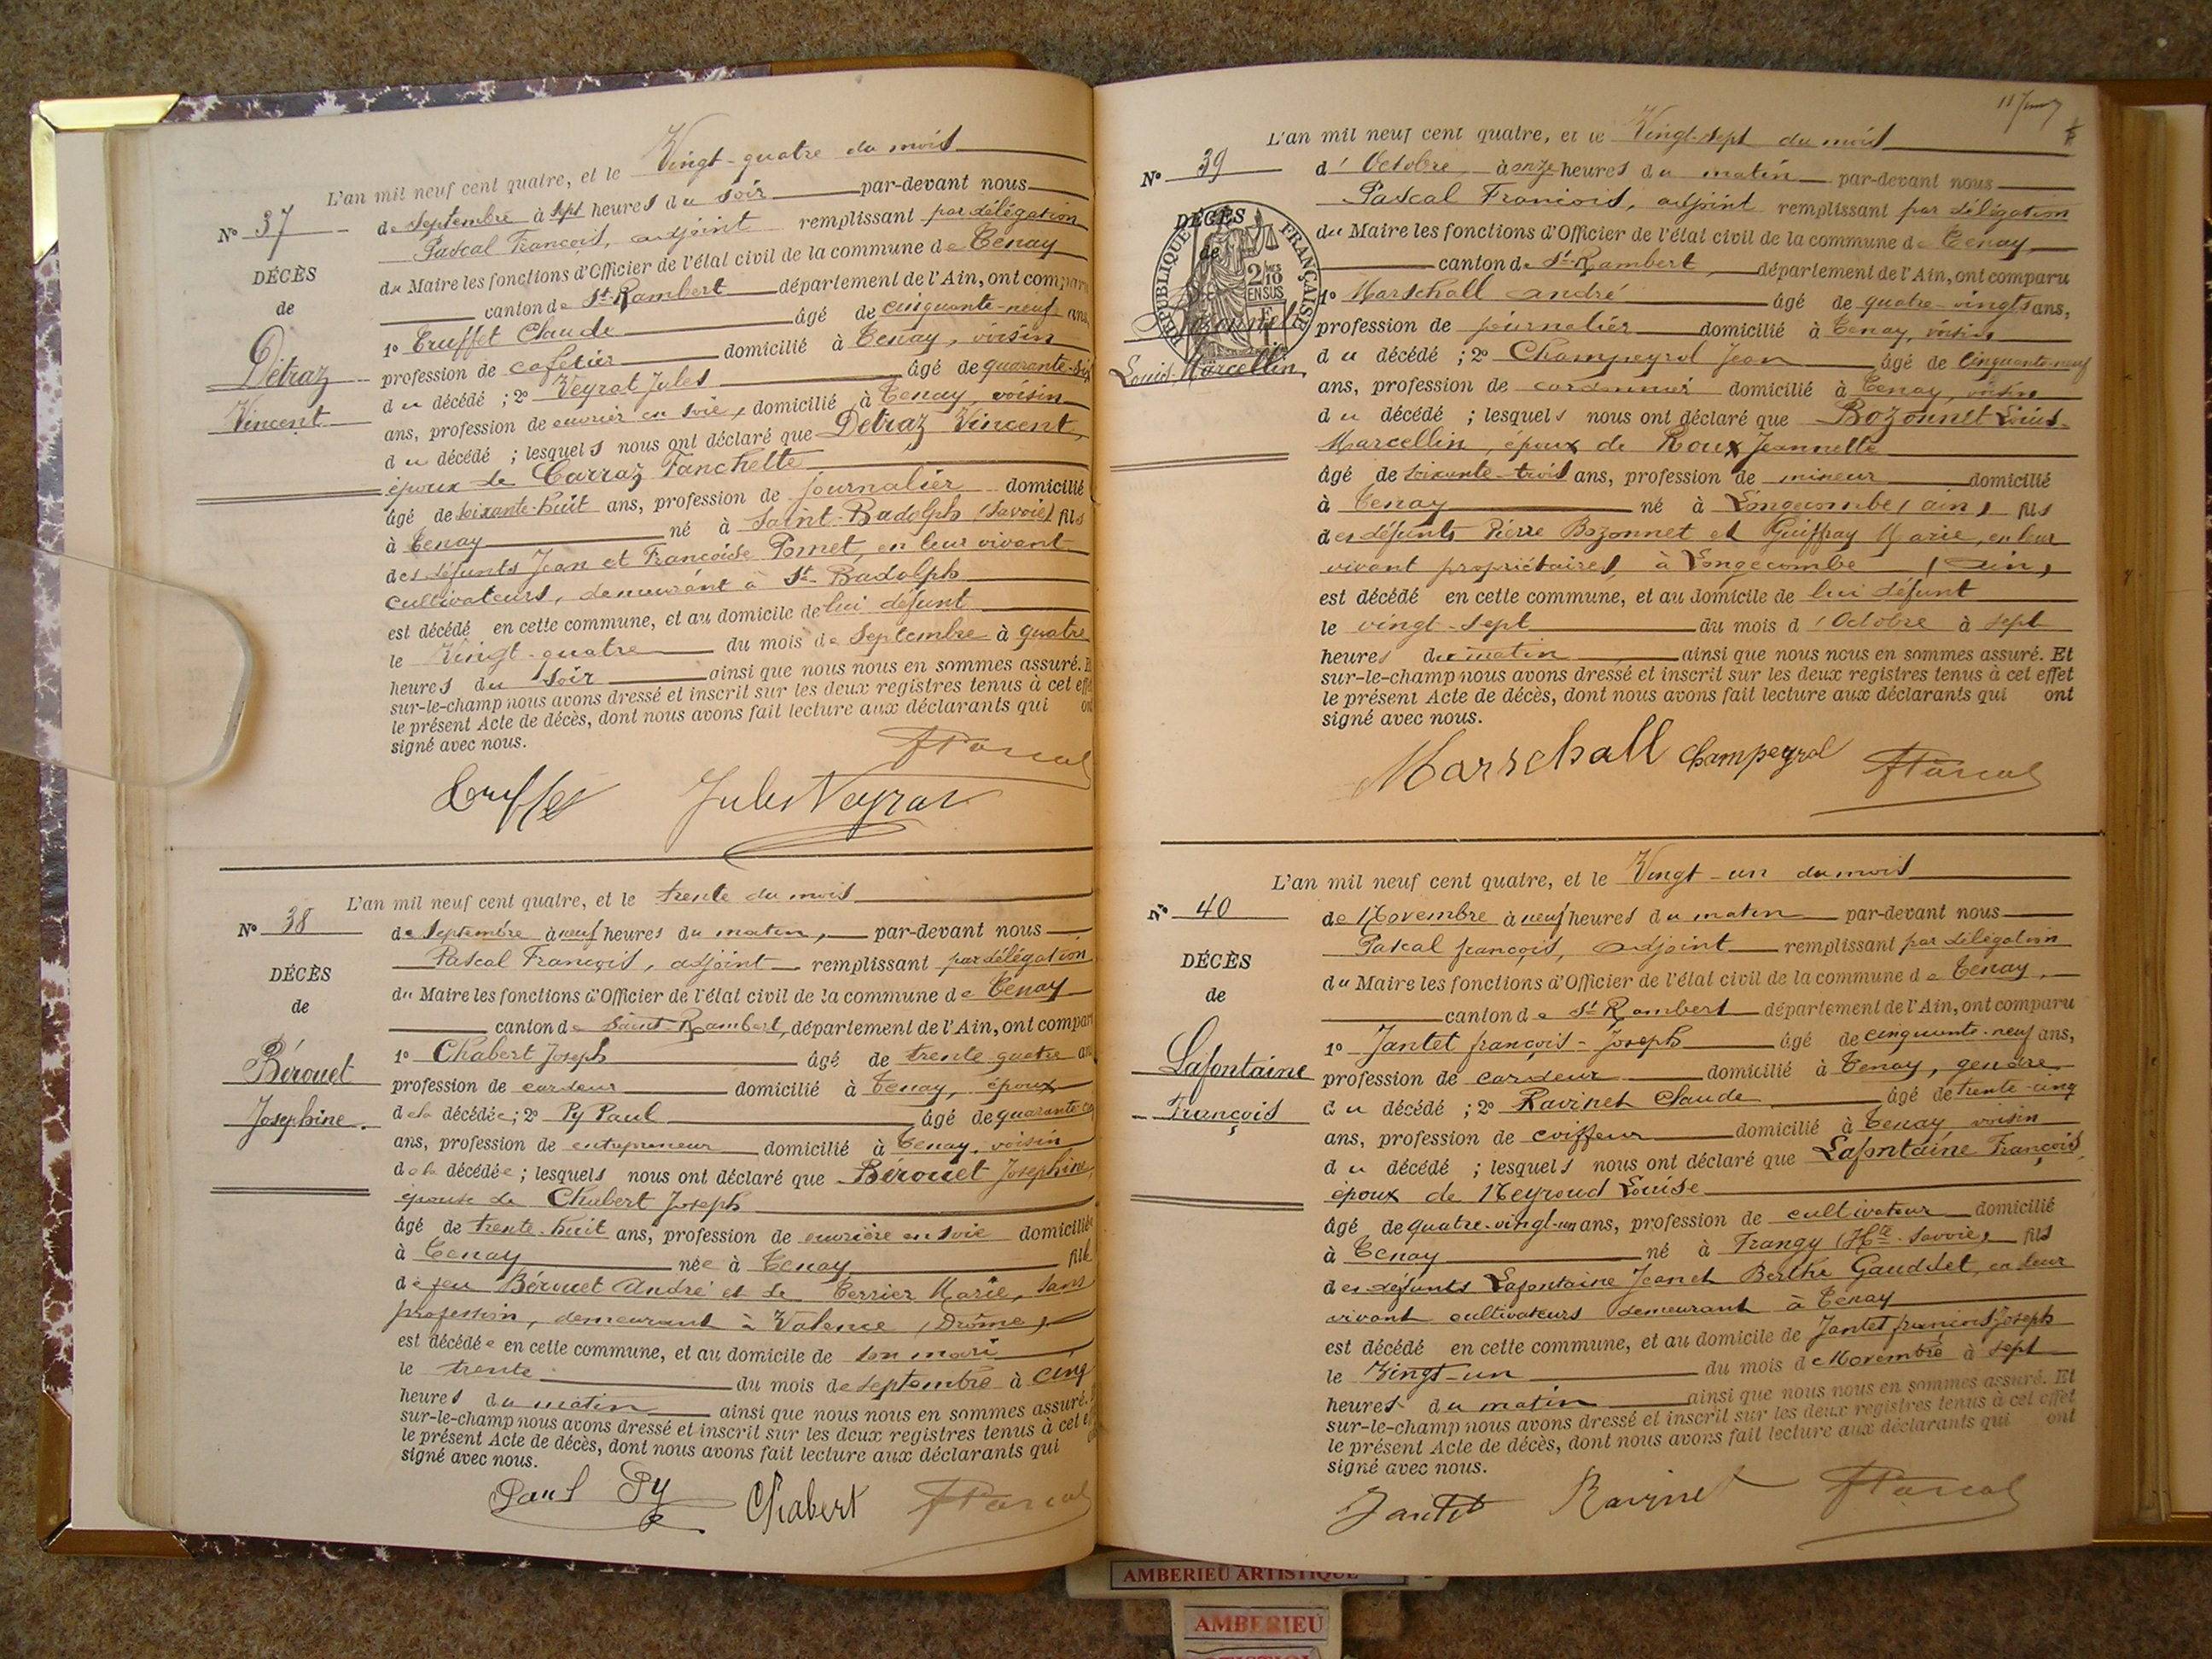 L'an mil neuf cent quatre, et le Vingt-quatre du mois
de Septembre à sept heures du soir par-devant nous
Pascal François, adjoint remplissant par délégation
du Maire les fonctions d'Officier de l'état civil de la commune de Tenay
canton de St-Rambert département de l'Ain, ont comparu
1º Truffet Claude âgé de cinquante-neuf ans,
profession de cafetier domicilié à Tenay, voisin
du décédé ; 2º Veyrat Jules âgé de quarante-six
ans, profession de ouvrier en soie, domicilié à Tenay, voisin
du décédé ; lesquels nous ont déclaré que Détraz Vincent,
époux de Carraz Fanchette
âgé de soixante-huit ans, profession de journalier domicilié
à Tenay né à Saint-Badolph (Savoie) fils
des défunts Jean et Françoise Pornet, en leur vivant
cultivateurs, demeurant à St-Badolph
est décédé en cette commune, et au domicile de lui défunt
le Vingt-quatre du mois de Septembre à quatre
heures du soir ainsi que nous nous en sommes assuré. E
sur-le-champ nous avons dressé et inscrit sur les deux registres tenus à cet effet
le présent Acte de décès, dont nous avons fait lecture aux déclarants qui ont
signé avec nous.
FPascal
Truffet Jules Veyrat
Nº 37
DÉCÈS
de
Détraz
Vincent
L'an mil neuf cent quatre, et le trente du mois
de Septembre à neuf heures du matin, par-devant nous
Pascal François, adjoint remplissant par délégation
du Maire les fonctions d'Officier de l'état civil de la commune de Tenay
canton de Saint-Rambert, département de l'Ain, ont compar
1º Chabert Joseph âgé de trente-quatre an
profession de cardeur domicilié à Tenay, époux
de la décédée ; 2º Py Paul âgé de quarante-
ans, profession de entrepreneur domicilié à Tenay, voisin
de la décédée ; lesquels nous ont déclaré que Bérouet Josephine,
épouse de Chabert Joseph
âgé de trente-huit ans, profession de ouvrière en soie domiciliée
à Tenay née à Tenay fille
de feu Bérouet André et de Terrier Marie, sans
profession, demeurant à Valence (Drôme),
est décédée en cette commune, et au domicile de son mari
le trente du mois de septembre à cinq
heures du matin ainsi que nous nous en sommes assuré.
sur-le-champ nous avons dressé et inscrit sur les deux registres tenus à cet e
le présent Acte de décès, dont nous avons fait lecture aux déclarants qui
signé avec nous.
Paul Py Chabert FPascal
Nº 38
DÉCÈS
de
Bérouet
Josephine.
L'an mil neuf cent quatre, et le Vingt-sept du mois
d'Octobre, à onze heures du matin par-devant nous
Pascal François, adjoint remplissant par délégation
du Maire les fonctions d'Officier de l'état civil de la commune de Tenay
canton de St-Rambert, département de l'Ain, ont comparu
1º Marschall André âgé de quatre-vingts ans,
profession de journalier domicilié à Tenay, voisin
du décédé ; 2º Champeyrol Jean âgé de cinquante-neuf
ans, profession de cordonnier domicilié à Tenay, voisin
du décédé ; lesquels nous ont déclaré que Bozonnet Louis-
Marcellin, époux de Roux Jeannette
âgé de soixante-trois ans, profession de mineur domicilié
à Tenay né à Longecombe (ain), fils
des défunts Pierre Bozonnet et Guiffray Marie, en leur
vivant propriétaires, à Longecombe (Ain),
est décédé en cette commune, et au domicile de lui défunt
le vingt-sept du mois d'Octobre à sept
heures du matin ainsi que nous nous en sommes assuré. Et
sur-le-champ nous avons dressé et inscrit sur les deux registres tenus à cet effet
le présent Acte de décès, dont nous avons fait lecture aux déclarants qui ont
signé avec nous.
Marschall Champeyrol FPascal
Nº 39
DÉCÈS
de
Bozonnet
Louis-Marcellin
RÉPUBLIQUE FRANÇAISE
2/10
EN SUS
L'an mil neuf cent quatre, et le Vingt-un du mois
de Novembre à neuf heures du matin par-devant nous
Pascal françois, adjoint remplissant par délégation
du Maire les fonctions d'Officier de l'état civil de la commune de Tenay,
canton de St Rambert département de l'Ain, ont comparu
1º Jantet françois-Joseph âgé de cinquante-neuf ans,
profession de cardeur domicilié à Tenay, gendre
du décédé ; 2º Ravinet Claude âgé de trente-cinq
ans, profession de coiffeur domicilié à Tenay voisin
du décédé ; lesquels nous ont déclaré que Lafontaine François,
époux de Neyroud Louise
âgé de quatre-vingt-un ans, profession de cultivateur domicilié
à Tenay né à Frangy (Hte-Savoie), fils
des défunts Lafontaine Jean et Berthe Gauddet, en leur
vivant cultivateurs demeurant à Tenay
est décédé en cette commune, et au domicile de Jantet françois-Joseph
le Vingt-un du mois de Novembre à sept
heures du matin ainsi que nous nous en sommes assuré. Et
sur-le-champ nous avons dressé et inscrit sur les deux registres tenus à cet effet
le présent Acte de décès, dont nous avons fait lecture aux déclarants qui ont
signé avec nous.
Jantet Ravinet FPascal
Nº 40
DÉCÈS
de
Lafontaine
François
AMBERIEU ARTISTIQUE
AMBERIEU